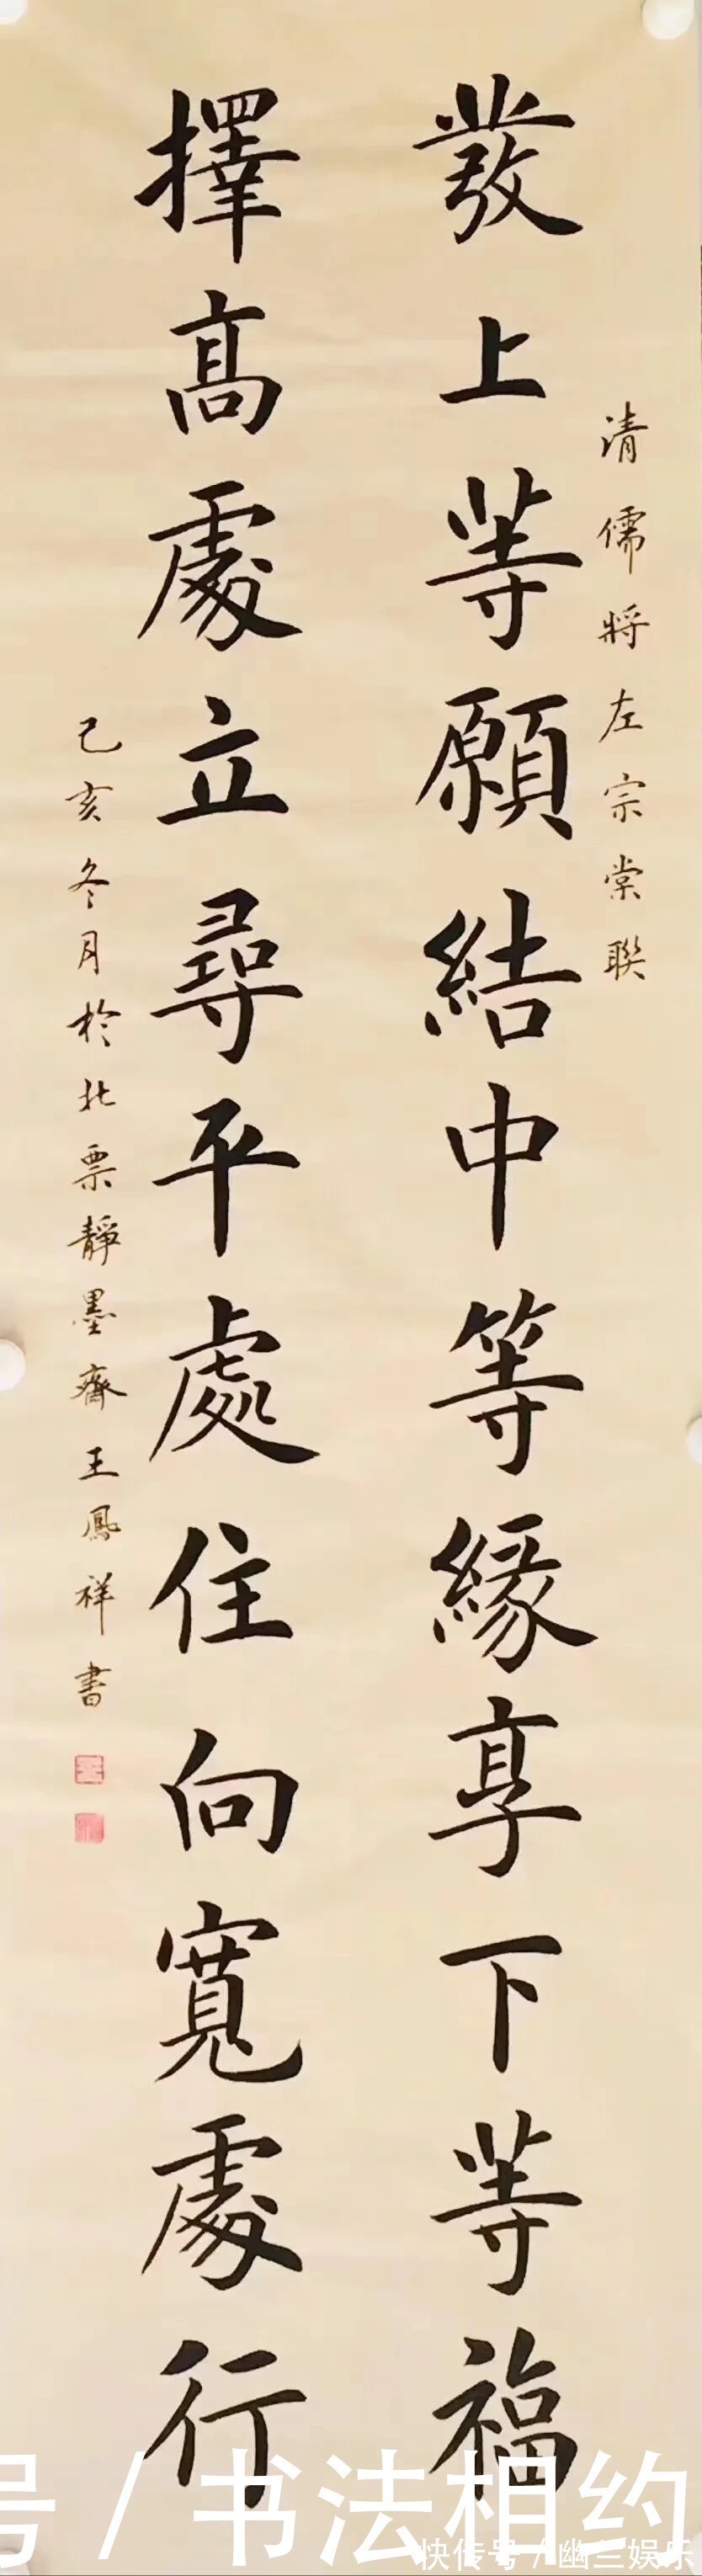 清儒將左宗棠聯
發上等願結中等緣享下等福
擇高處立尋平處住向寬處行
己亥冬月於北票靜墨齋王鳳祥書
号/书法相约
快传号/幽兰娱乐